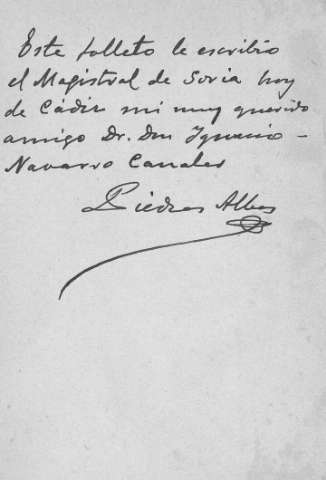 Este folleto le escribio
el Magistral de Soria hoy
de Cádiz mi muy querido
amigo Dr. Don Ignacio -
Navarro Canales
Piedras Albas